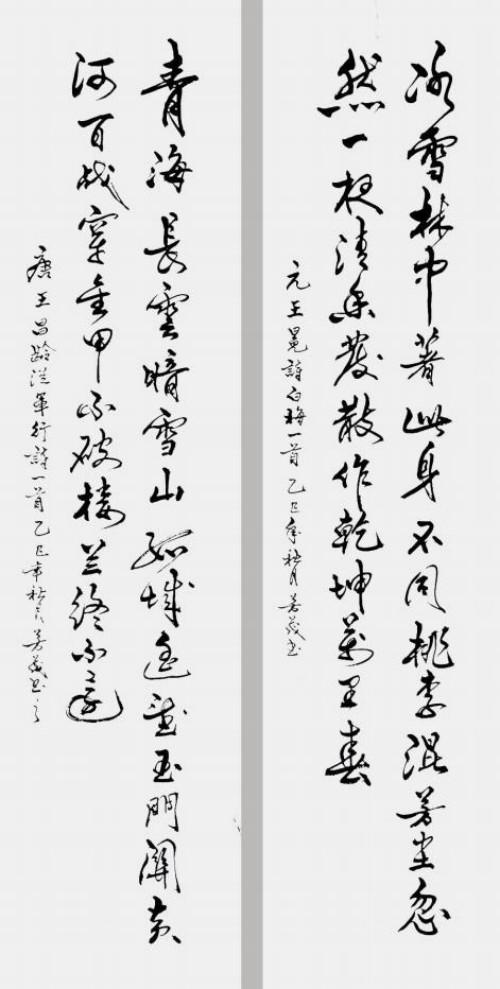 冰雪林中著此身不同桃李混芳尘忽
然一夜清香發散作乾坤萬里春
元王冕詩白梅一首乙巳年秋月芳茂书
青海長雲暗雪山孤城遥望玉門關黄
河百战穿金甲不破楼兰终不還
唐王昌龄從軍行詩一首乙巳年秋月芳茂书之